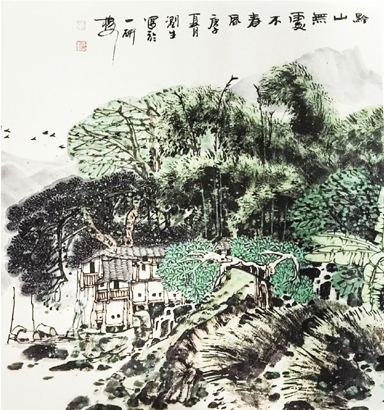 黔山無處不春風庚子夏月瀏生寫於一研